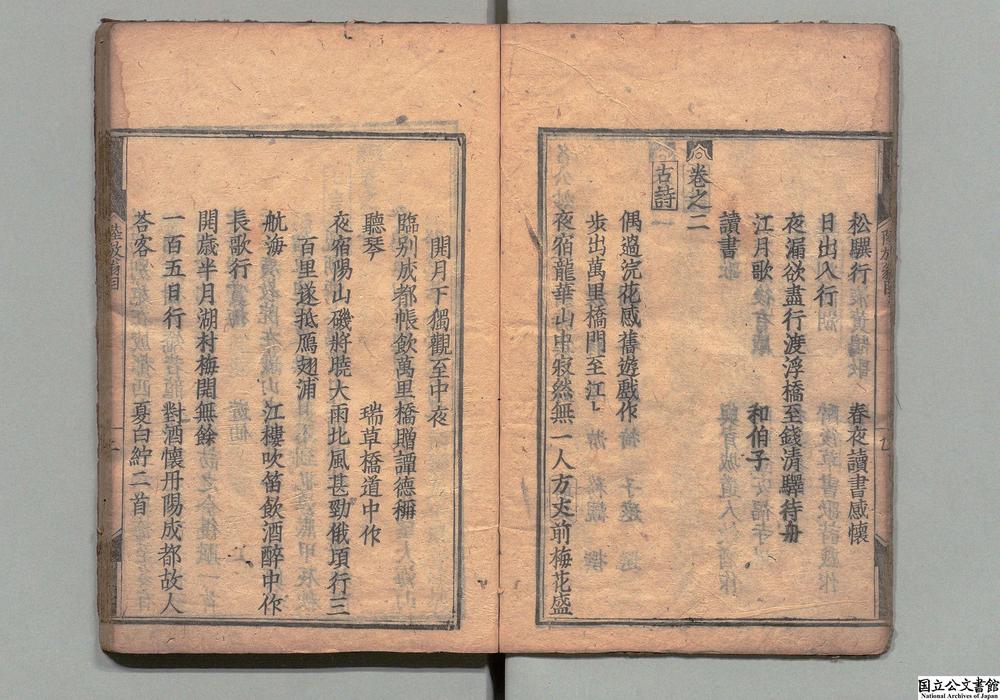 松驥行
春夜讀書感懷
日出入行
夜漏欲盡行渡浮橋至錢清驛待舟
江月歌
和伯子
讀書
卷之二
古詩
偶過浣花感舊遊戲作
步出萬里橋門至江上
夜宿龍華山中寂然無一人方丈前梅花盛
開月下獨觀至中夜
臨別成都帳飲萬里橋贈譚德稱
聽琴
瑞草橋道中作
夜宿陽山磯將曉大雨北風甚勁俄頃行三
百里遂抵鴈翅浦
航海
江樓吹笛飲酒醉中作
長歌行
開歲半月湖村梅開無餘
一百五日行
對酒懷丹陽成都故人
荅客
夏白紵二首
国立公文書館
National Archives of Japan